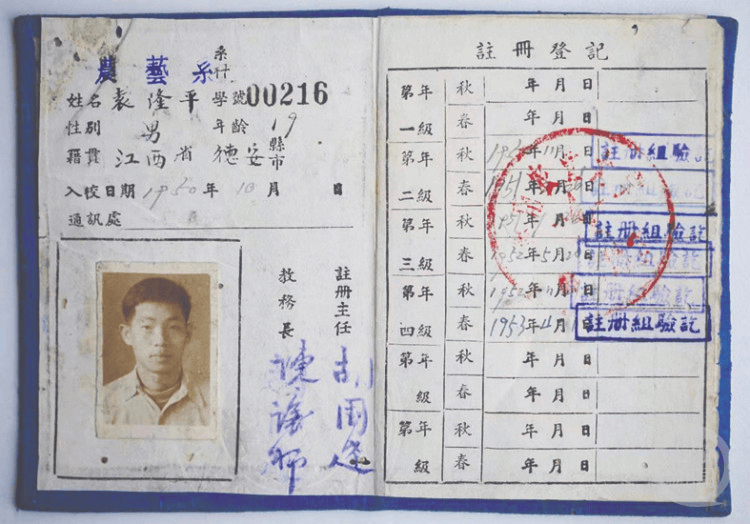 系
農藝系 科
姓名 袁隆平 學號 00216
性別 男 年齡 19
籍貫 江西省 德安 縣市
入校日期 1950年 10月 日
通訊處
註冊主任
教務長
註冊登記
第一年級 秋 年 月 日
春 年 月 日
第二年級 秋 年11月 日 註冊組驗訖
春 1951年 月 日 註冊組驗訖
第三年級 秋 195 年 月 日 註冊組驗訖
春 1952年5月 日 註冊組驗訖
第四年級 秋 1952年 月 日 註冊組驗訖
春 1953年 月 日 註冊組驗訖
第 年級 秋 年 月 日
春 年 月 日
第 年級 秋 年 月 日
春 年 月 日